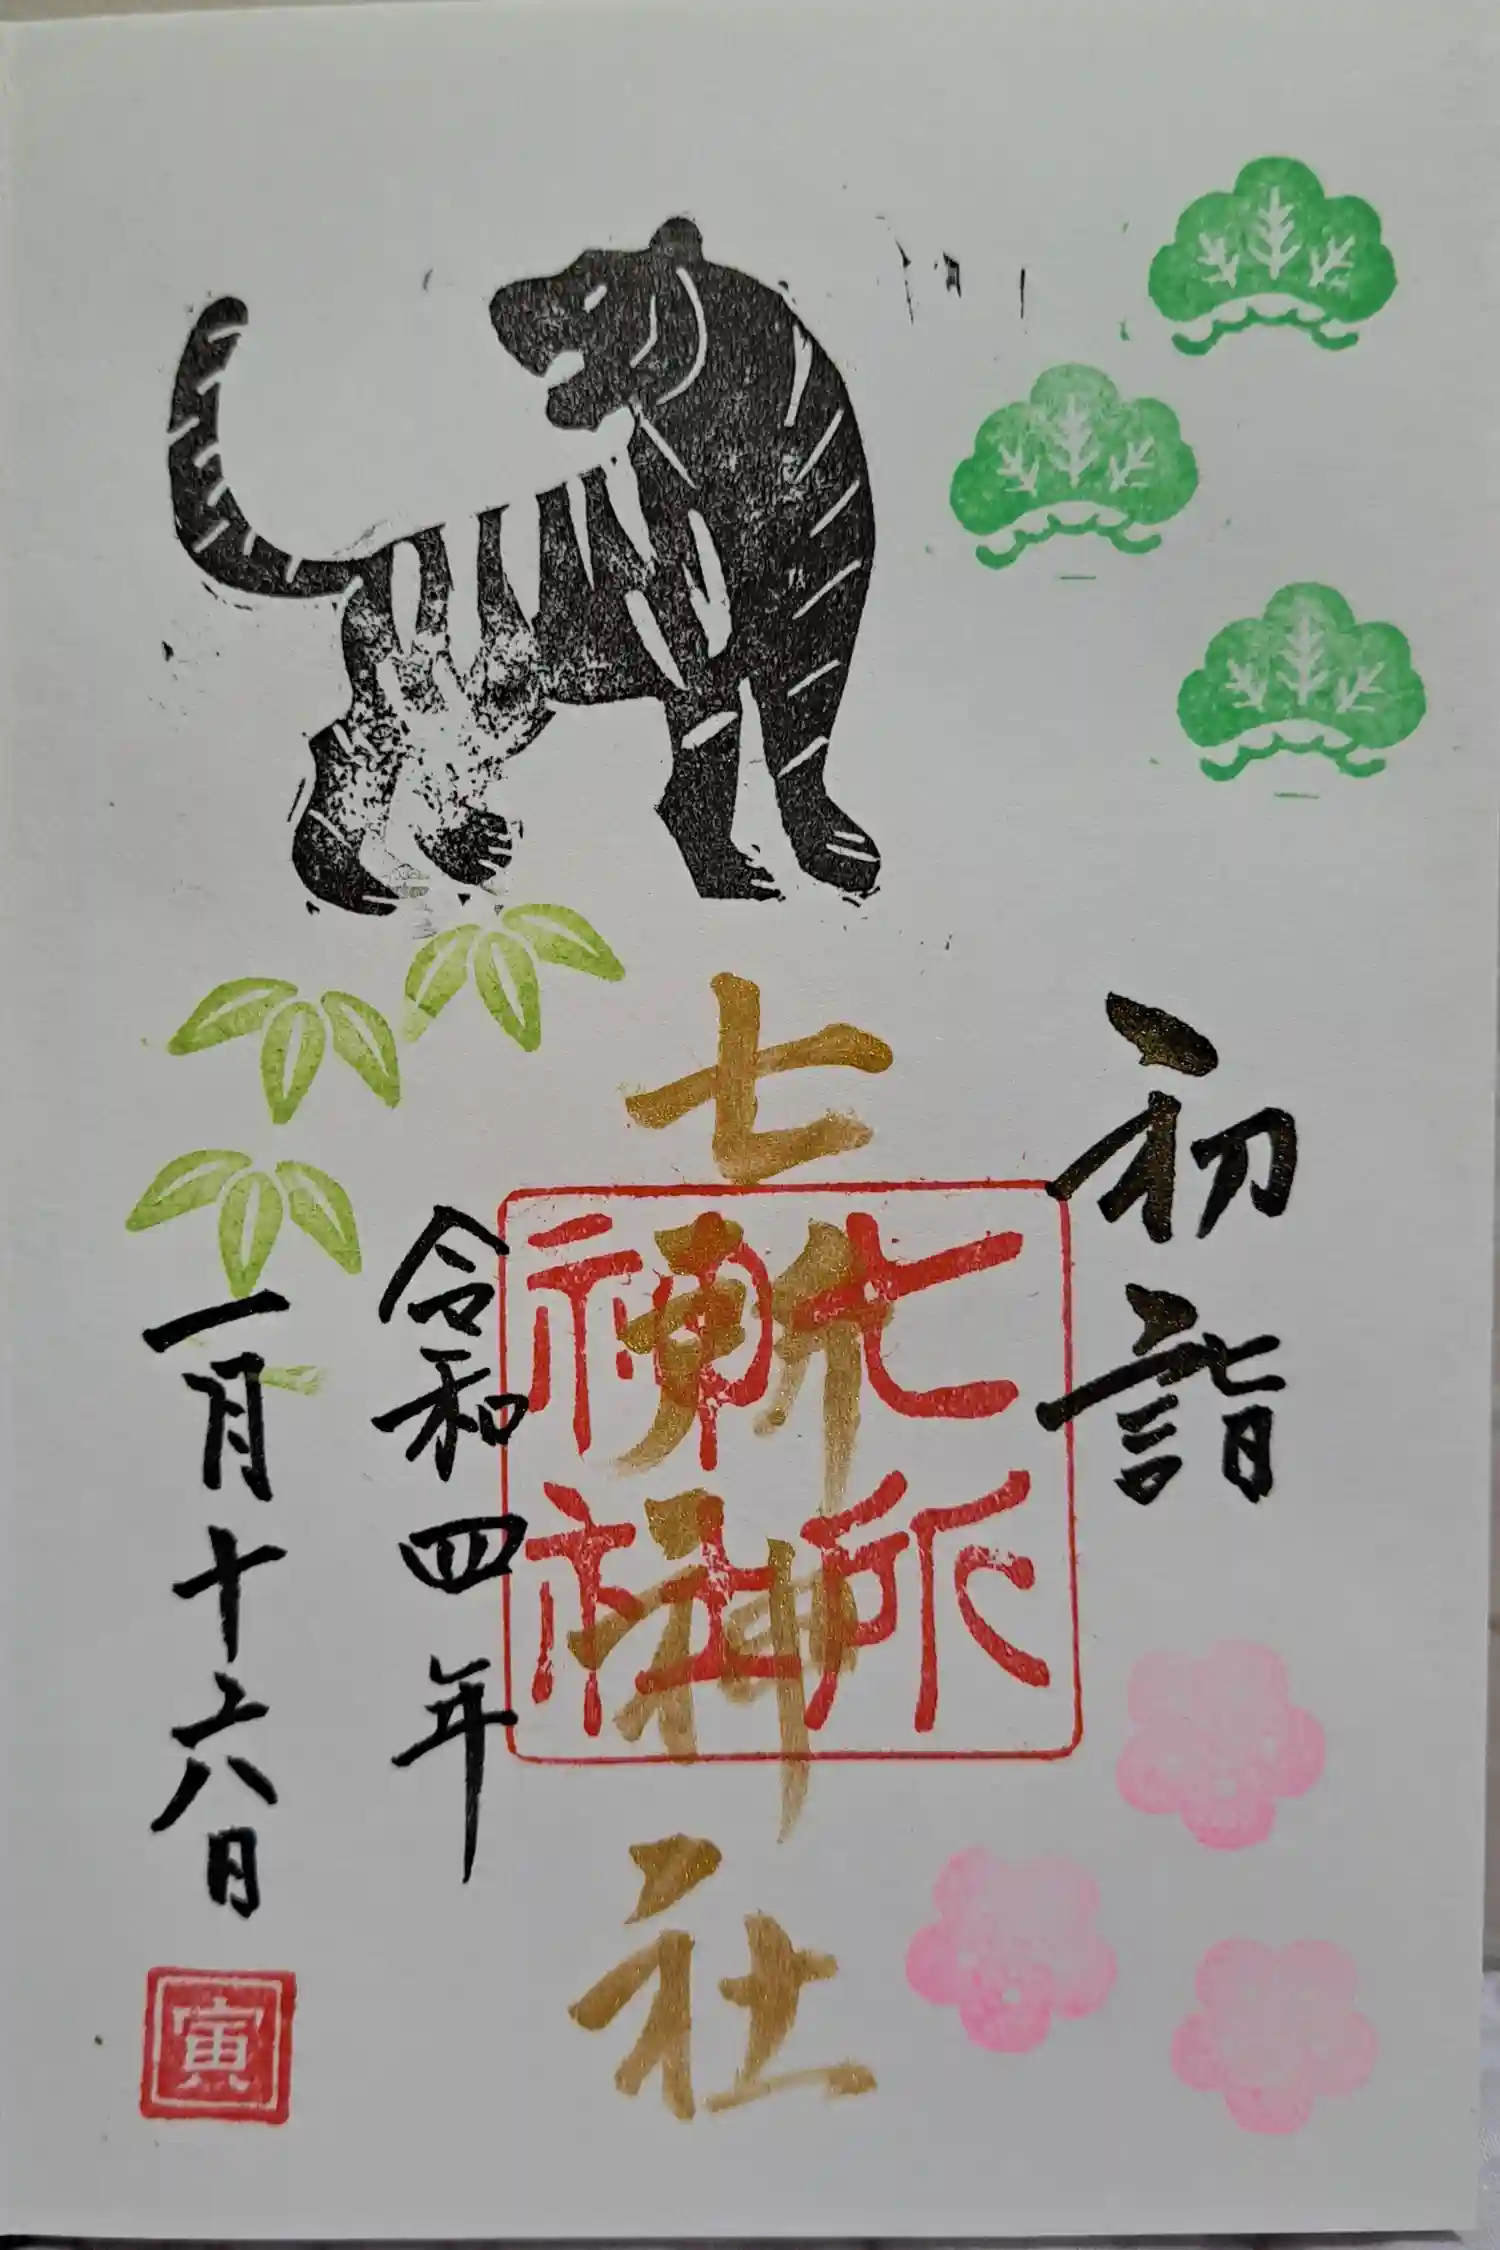 初詣
七所神社
七所
神社
令和四年
一月十六日
寅